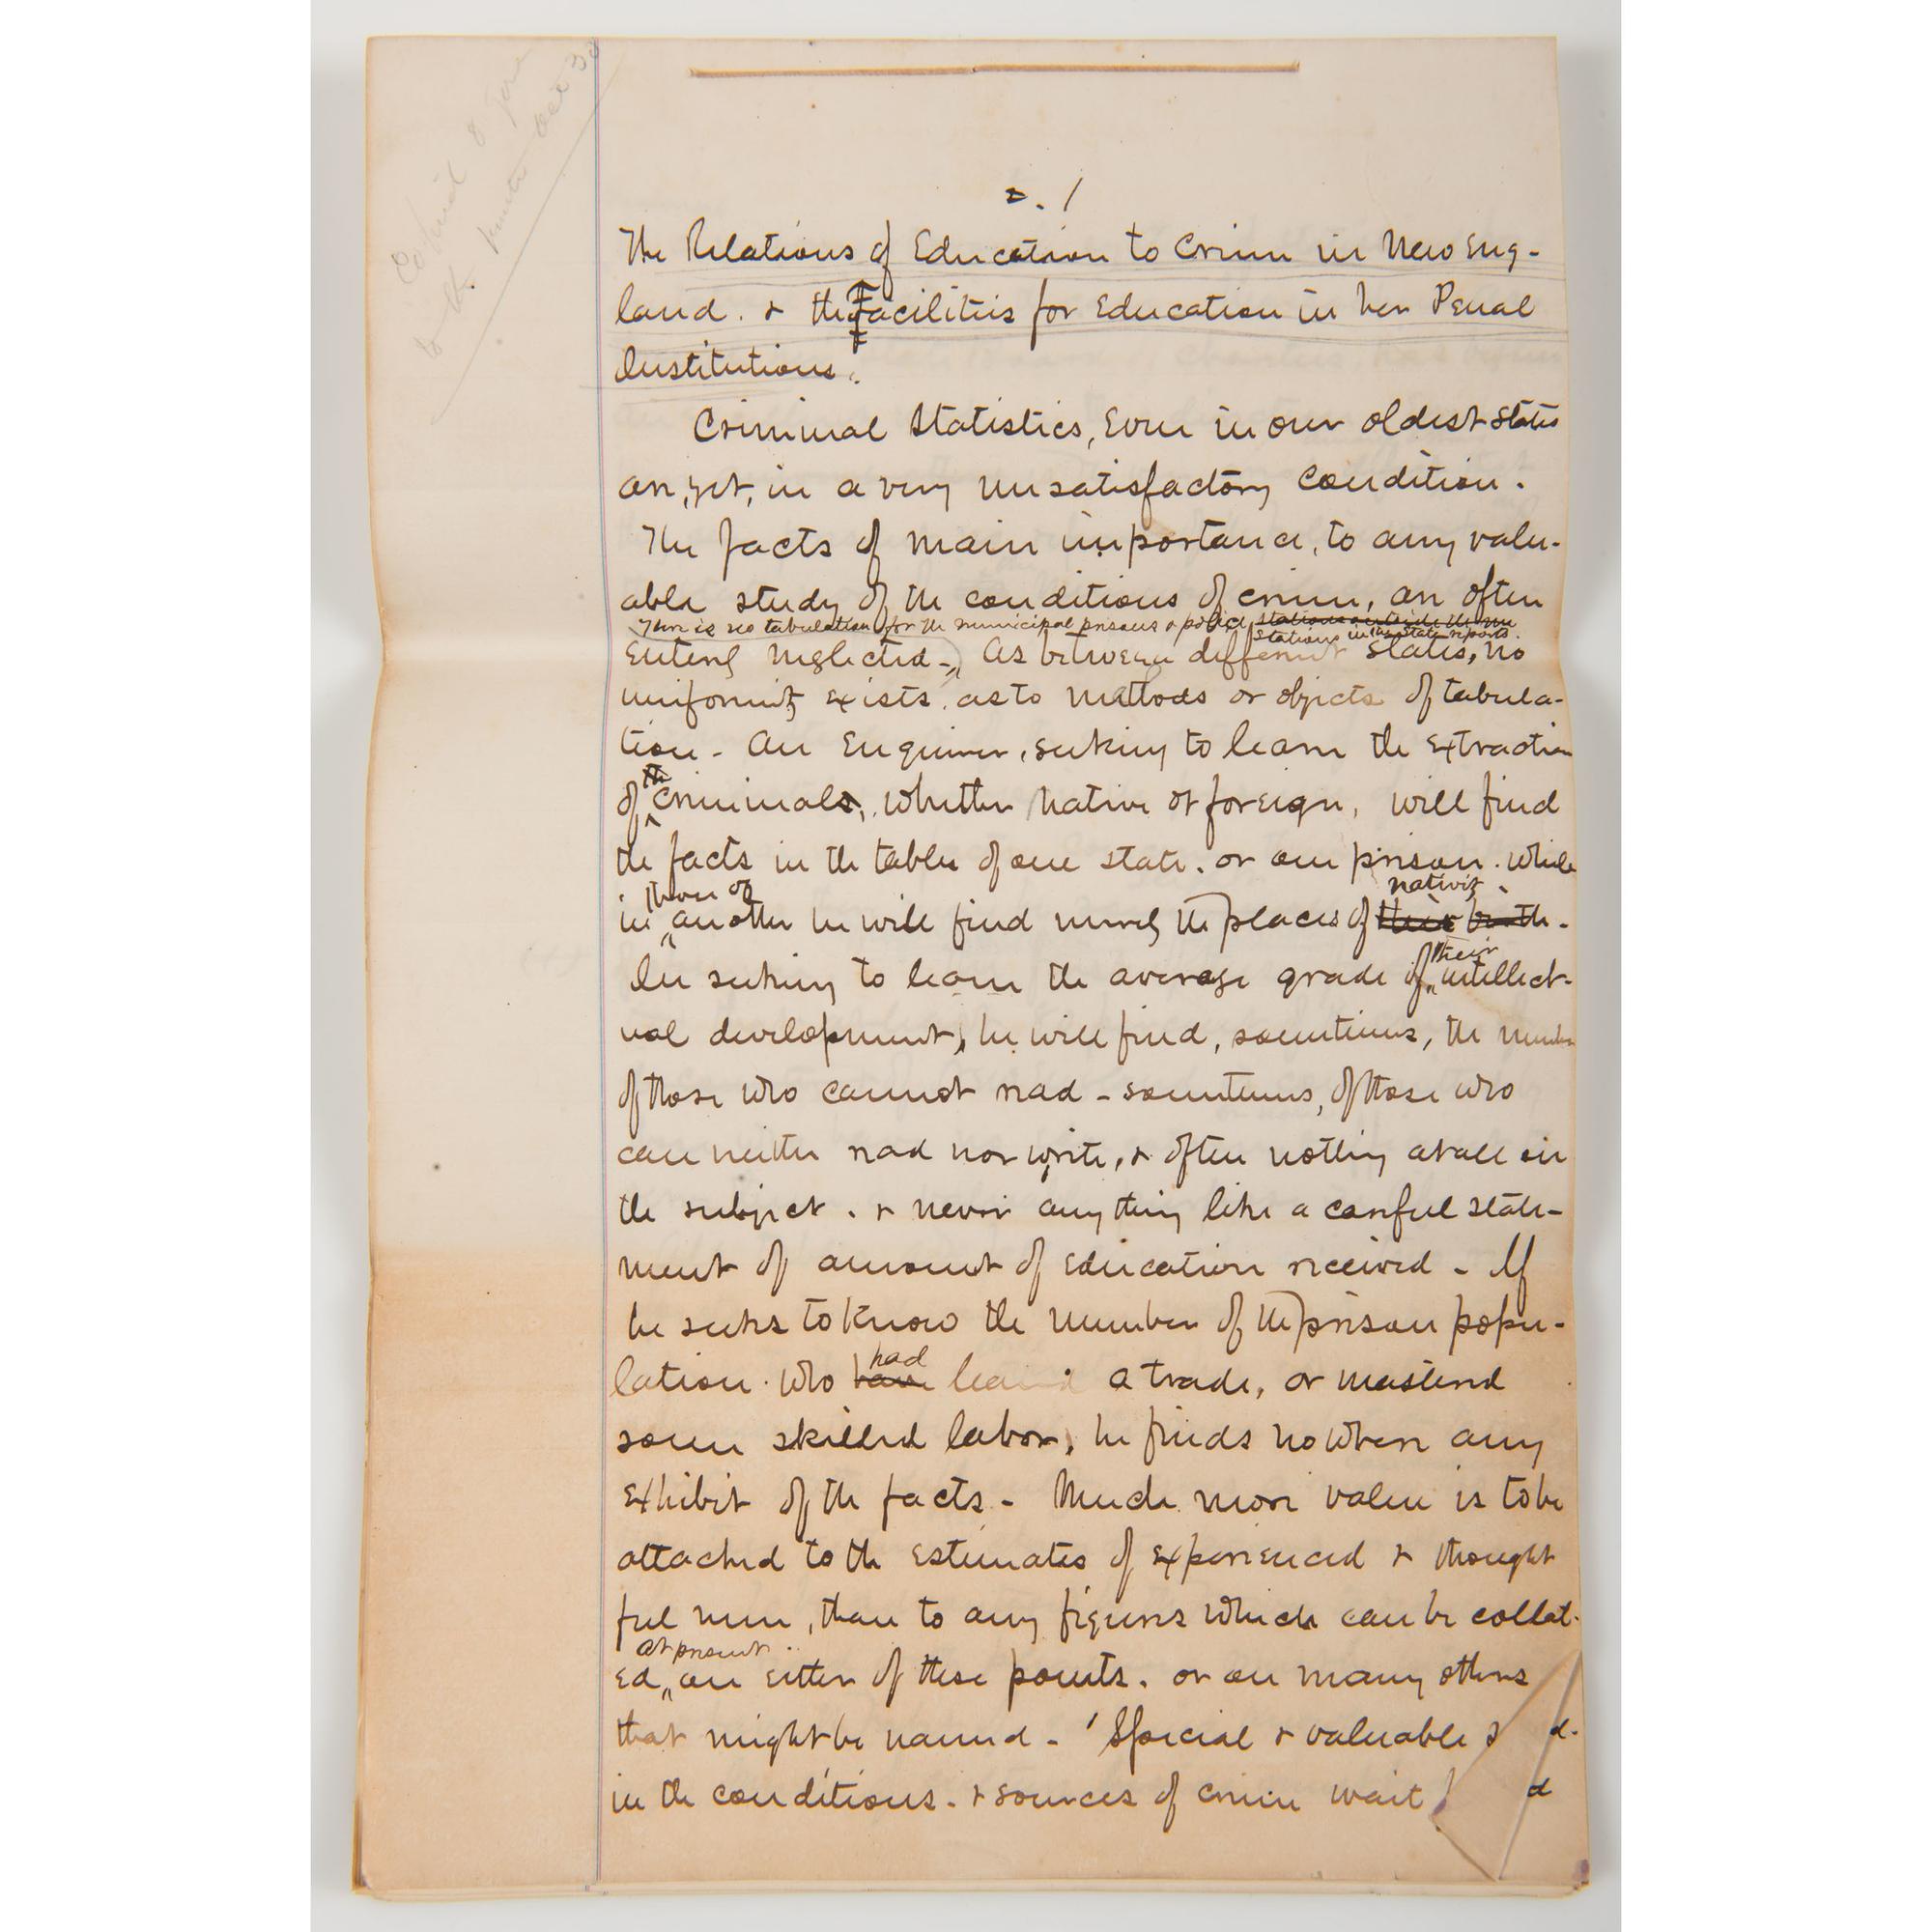 2. 1
The Relations of Education to Crime in New Eng-
land. & the Facilities for Education in her Penal
Institutions.
Criminal Statistics, Even in our oldest States
are, yet, in a very unsatisfactory condition.
The facts of main importance, to any valu-
able study of the conditions of crime, are often
There is no tabulation for the municipal prisons & police stations outside the
stations in the state reports.
Entirely neglected - As between different States, no
uniformity exists as to methods or objects of tabula-
tion - An Enquirer, seeking to learn the Extraction
the
of criminals, whether native or foreign, will find
the facts in the tables of one state. or one prison. while
those of nativity.
in another he will find merely the places of their birth.
their
In seeking to learn the average grade of intellect-
ual development, he will find, sometimes, the number
of those who cannot read - sometimes, of those who
can neither read nor write, & often nothing at all on
the subject. & never anything like a careful state-
ment of amount of Education received - If
he seeks to know the number of the prison popu-
had
lation. who have learned a trade, or mastered
some skilled labor, he finds nowhere any
Exhibit of the facts - Much more value is to be
attached to the Estimates of Experienced & thought
ful men, than to any figures which can be collat-
at present
Ed, on Either of these points. or on many others
that might be named - Special & valuable
in the conditions. & sources of crime wait